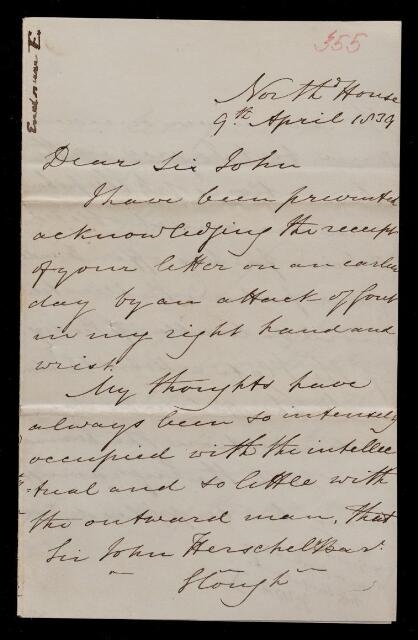 355
North.d House
9th April 1839
Dear Sir John
I have been prevented
acknowledging the receipt
of your letter on an earlier
day by an attack of Gout
in my right hand and
wrist.
My thoughts have
always been so intensely
occupied with the intellec
=tual and so little with
the outward man, that
Sir John Herschel Bart.
Slough